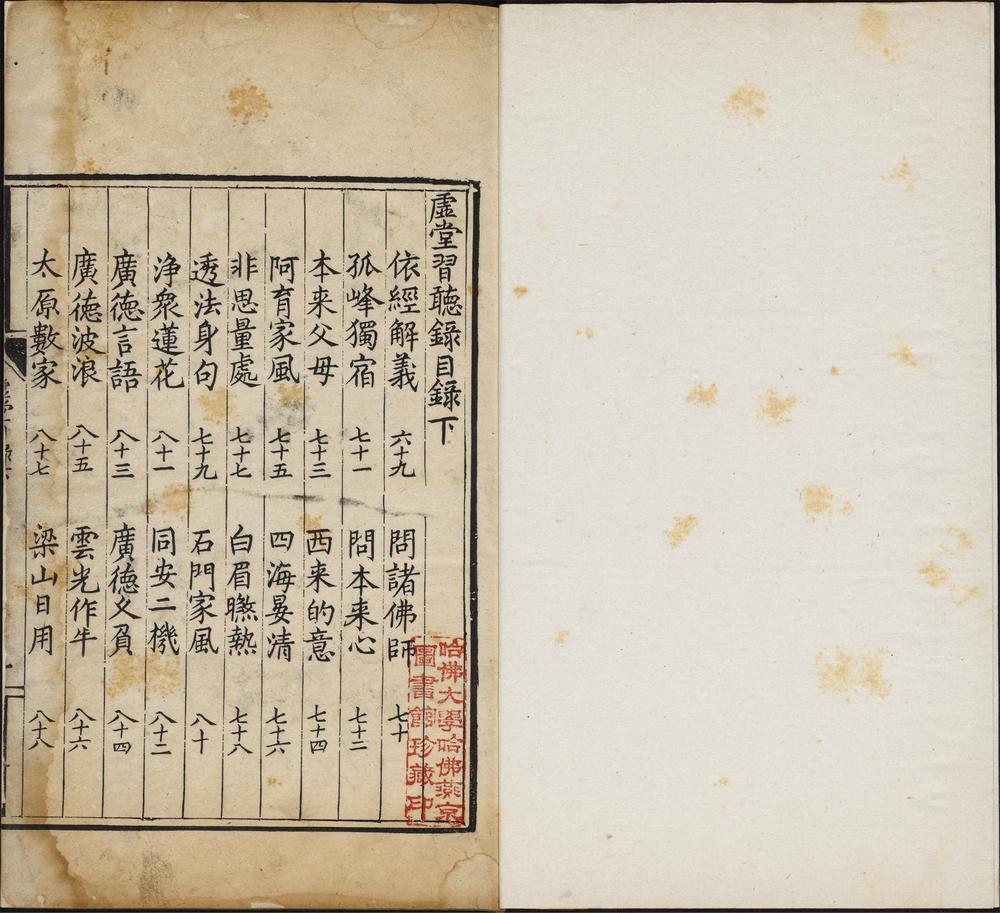 虛堂習聽錄目錄下
依經解義 六十九 問諸佛師 七十
孤峰獨宿 七十一 問本来心 七十二
本来父母 七十三 西来的意 七十四
阿育家風 七十五 四海晏清 七十六
非思量處 七十七 白眉㬠熱 七十八
透法身句 七十九 石門家風 八十
淨衆蓮花 八十一 同安二機 八十二
廣德言語 八十三 廣德乂負 八十四
廣德波浪 八十五 雲光作牛 八十六
太原數家 八十七 梁山日用 八十八
哈佛大學哈佛燕京
圖書館珍藏印